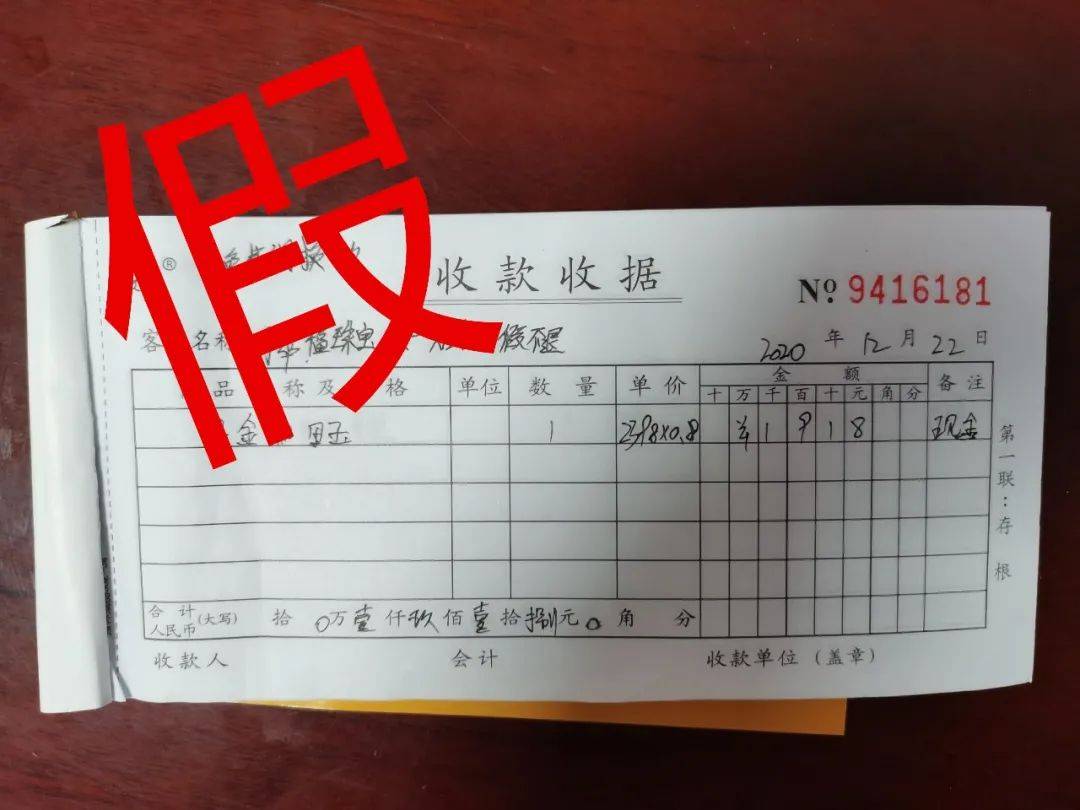 假
®
收款收据
№ 9416181
客 名称 福珠宝 2020 年 12 月 22 日
品 称及 格 单位 数量 单价 金额 备注
十 万 千 百 十 元 角 分
金 1 2398×0.8 ¥ 1 9 1 8 现金
第一联:存根
合计人民币(大写) 拾 0万壹仟玖佰壹拾捌元0角 分
收款人 会计 收款单位(盖章)